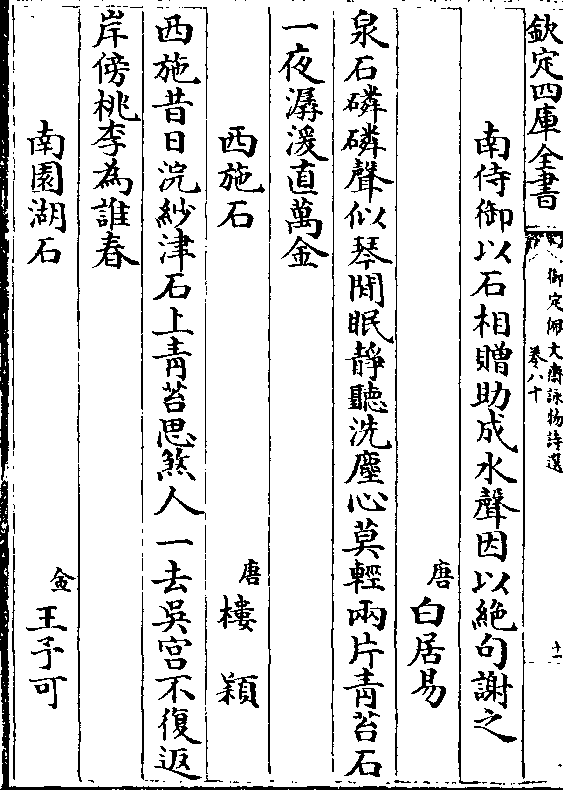 欽定四庫全書
御定佩文齋詠物詩選
卷八十
十一
南侍御以石相贈助成水聲因以絶句謝之
唐白居易
泉石磷磷聲似琴閒眠靜聽洗塵心莫輕兩片青苔石
一夜潺湲直萬金
西施石
唐樓頴
西施昔日浣紗津石上青苔思煞人一去吳宮不復返
岸傍桃李為誰春
南園湖石
金王予可